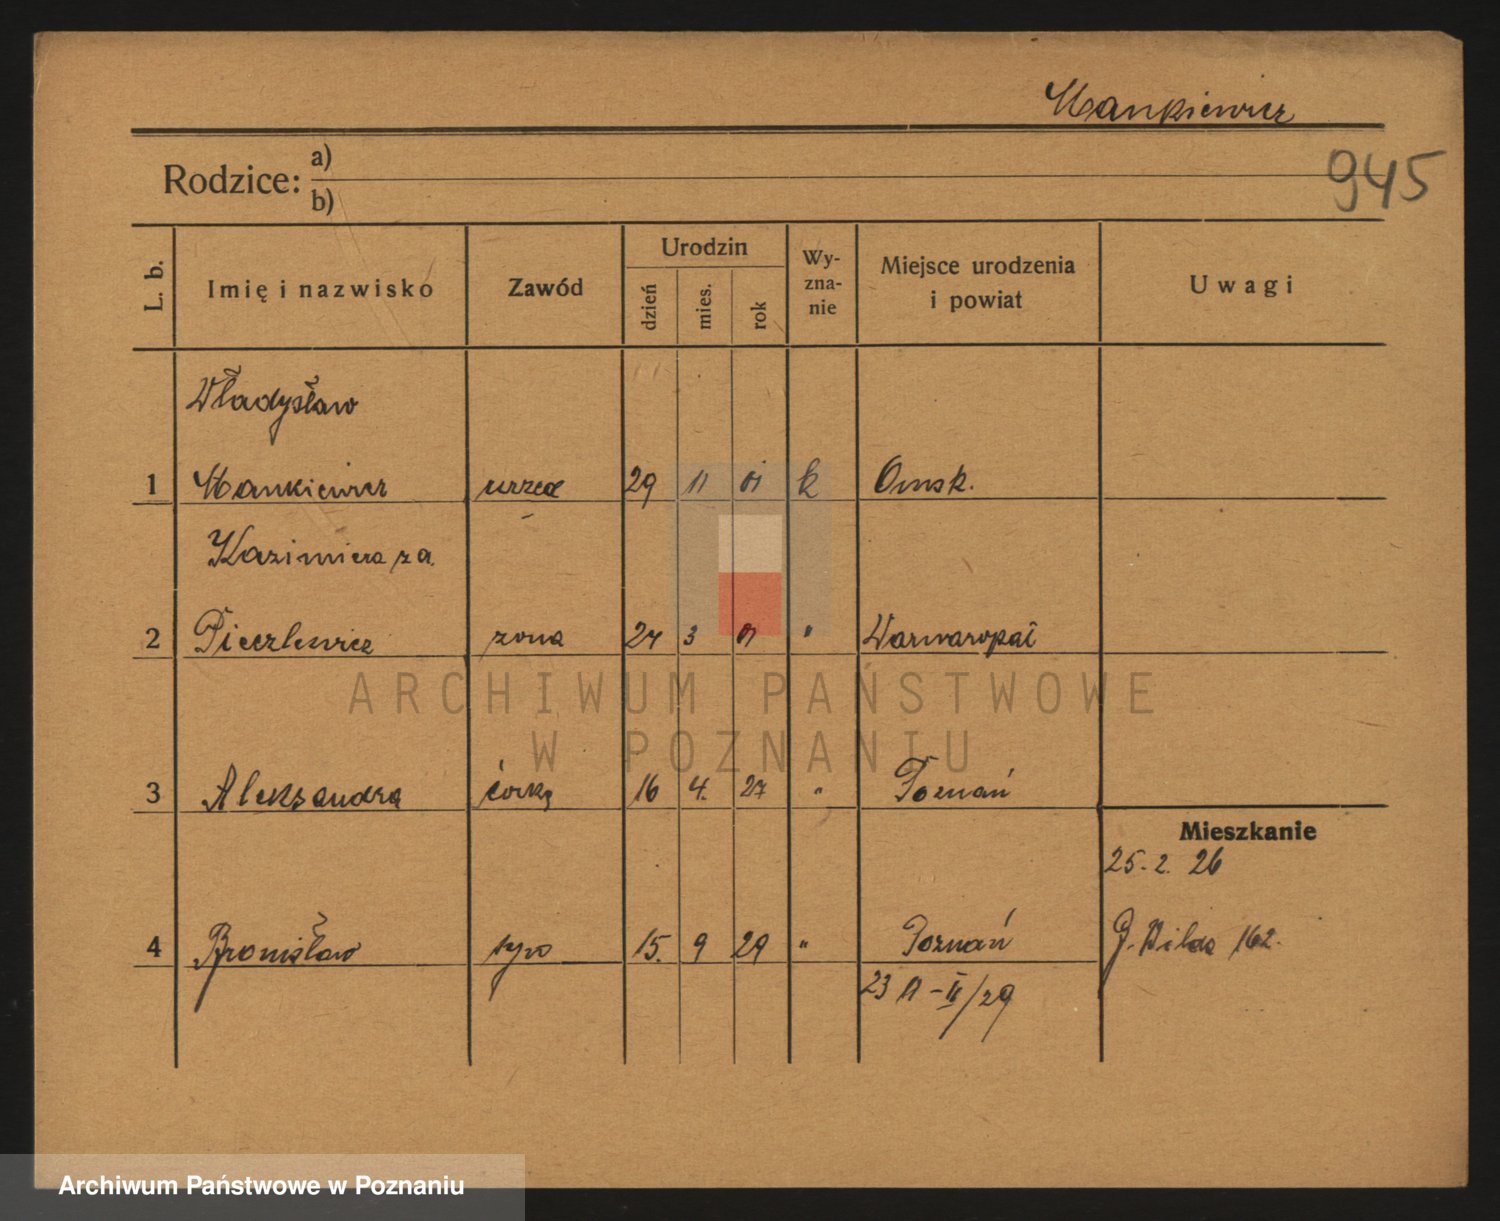 Mankiewicz
945
Rodzice: a)
b)
L. b.
Imię i nazwisko
Zawód
Urodzin
dzień
mies.
rok
Wy-
zna-
nie
Miejsce urodzenia
i powiat
Uwagi
Władysław
1 Mankiewicz urzęd 29 11 01 k Omsk.
Kazimiera za.
2 Pieczlewicz żona 27 3 01 " Warwaropal
3 Aleksandra córka 16 4. 27 " Poznań
Mieszkanie
25. 2. 26
4 Bronisław syn 15. 9 29 " Poznań G. Wilda 162.
ARCHIWUM PAŃSTWOWE
W POZNANIU
Archiwum Państwowe w Poznaniu